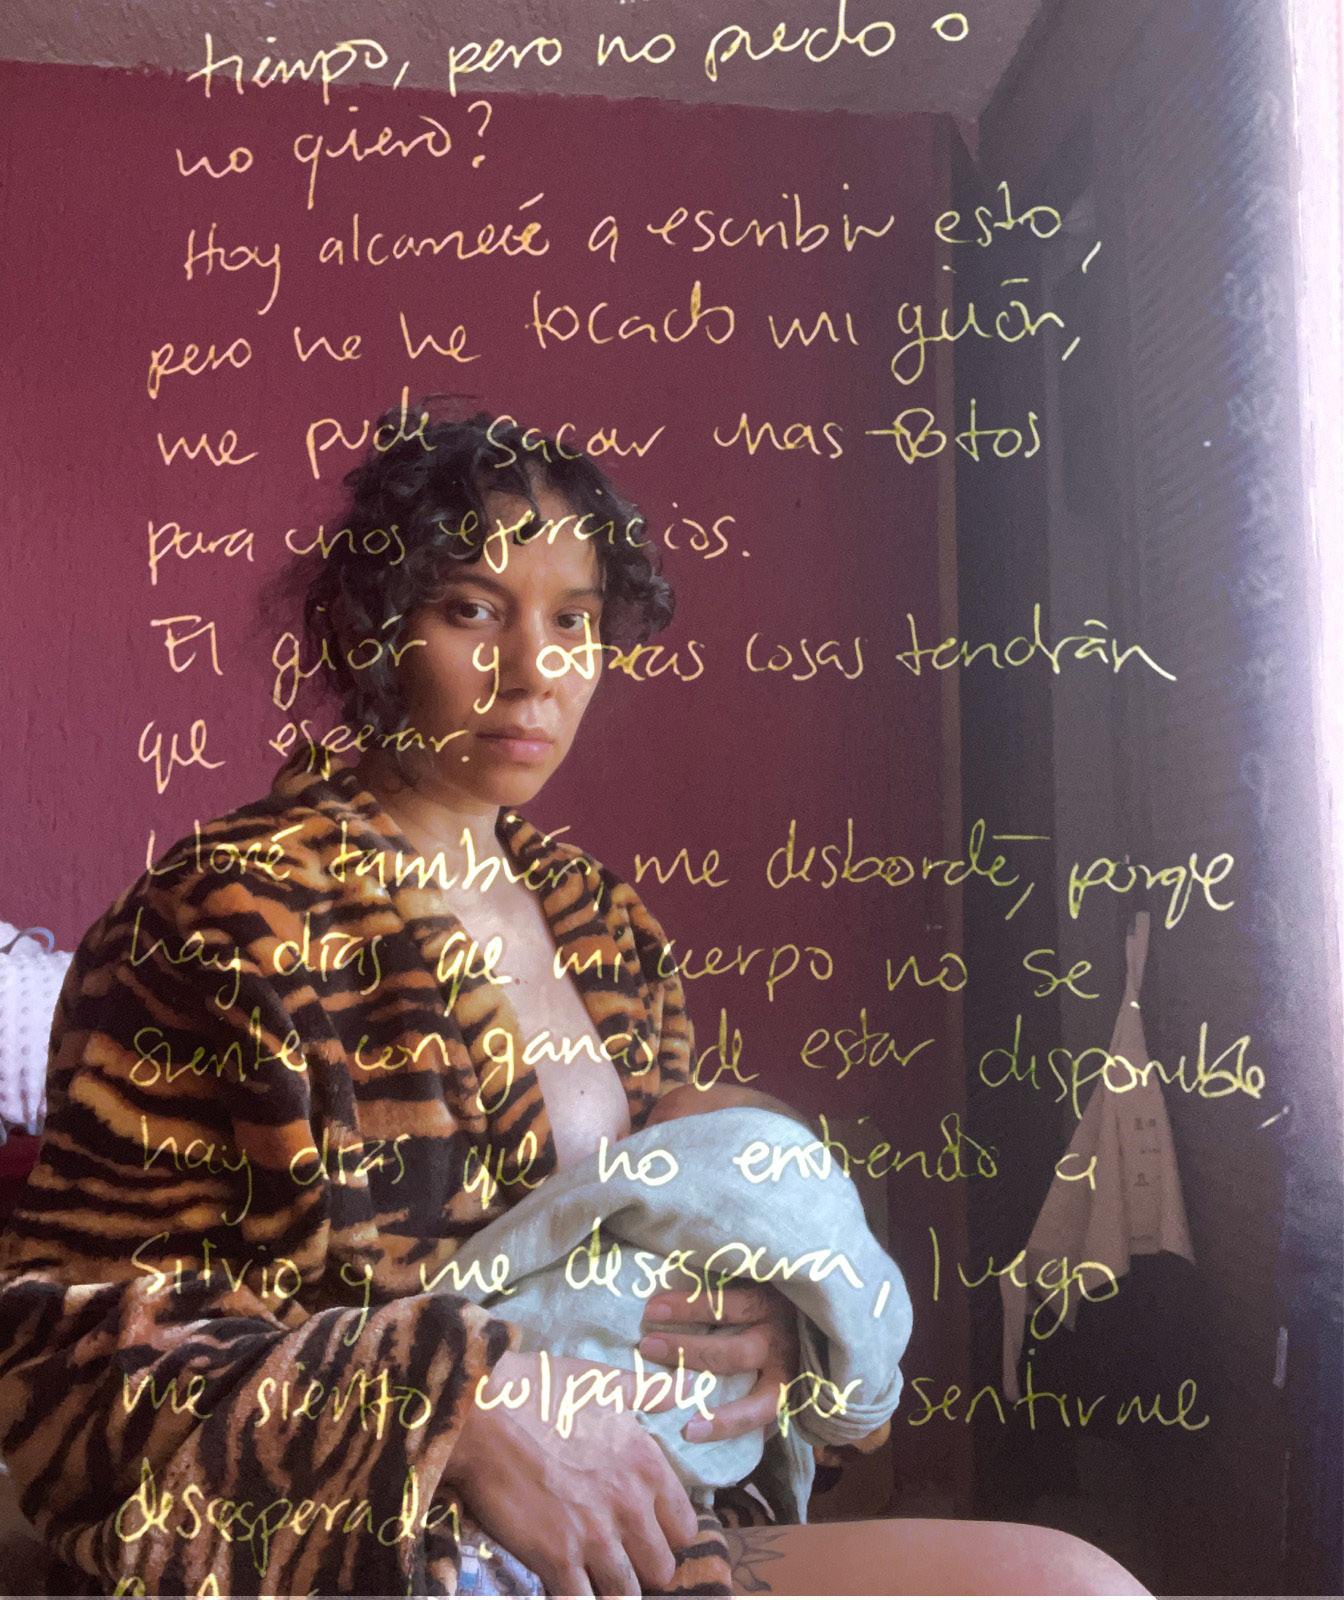 tiempo, pero no puedo o
no qiero?
Hoy alcancé a escribir esto,
pero no he tocado mi gión,
me pude sacar unas fotos
para unos ejercicios.
El gión y otras cosas tendrán
que esperar.
Lloré también, me desbordé, porqe
hay días que mi cuerpo no se
siente con ganas de estar disponible,
hay días que no entiendo a
Silvio y me desespera, luego
me siento culpable por sentirme
desesperada.